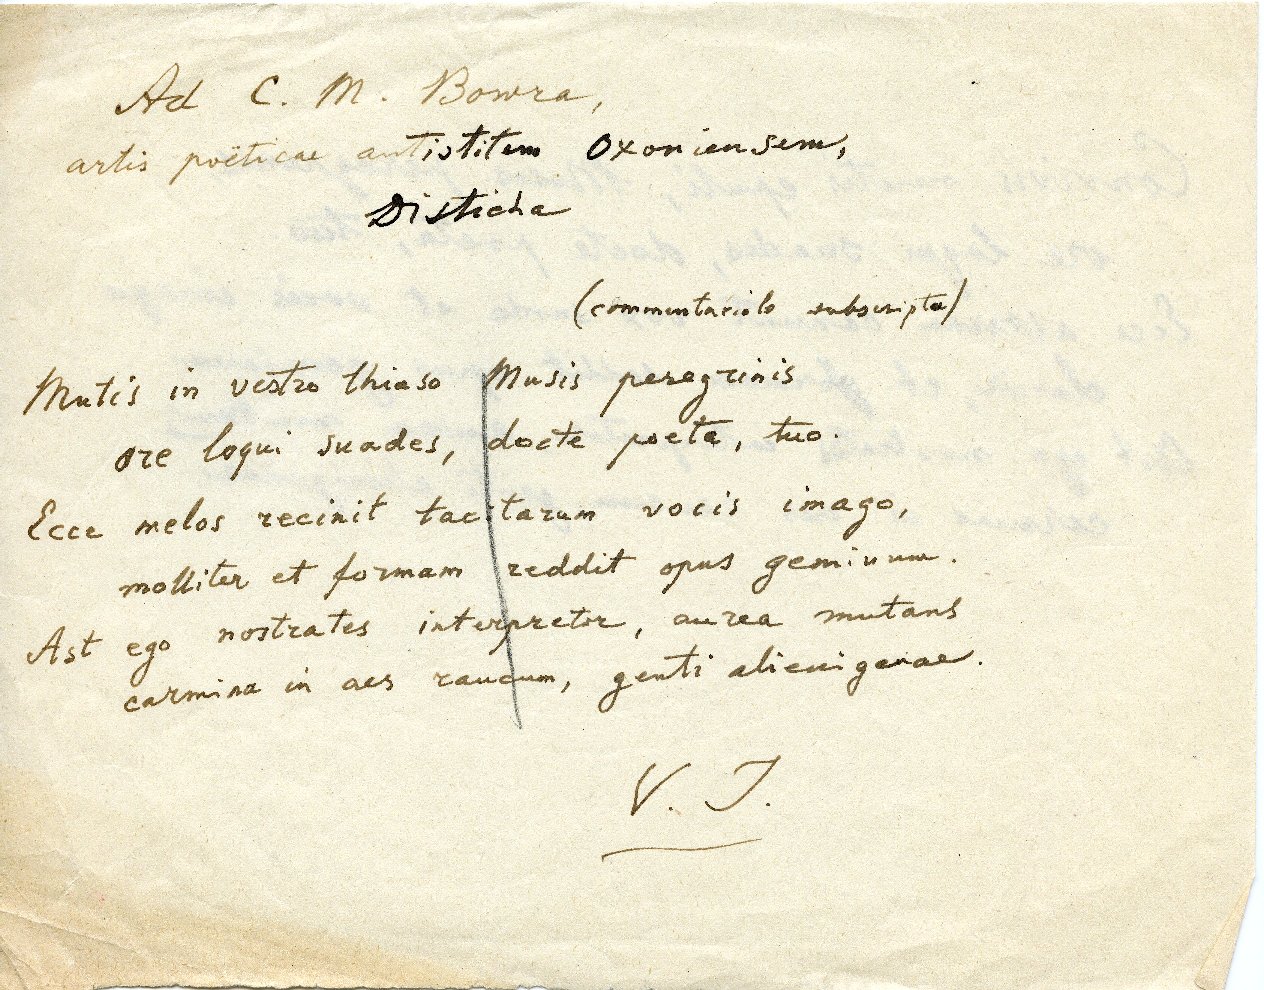 Ad C. M. Bowra,
artis poëticae antistitem Oxoniensem,
Disticha
(commentariolo subscripto)
Mutis in vestro thiaso Musis peregrinis
ore loqui suades, docte poeta, tuo.
Ecce melos recinit tacitarum vocis imago,
molliter et formam reddit opus geminum.
Ast ego nostrates interpretor, aurea mutans
carmina in aes raucum, genti alienigenae.
V. I.